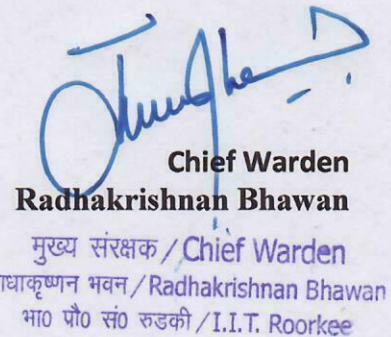 Chief Warden
Radhakrishnan Bhawan
मुख्य संरक्षक / Chief Warden
ाधाकृष्णन भवन / Radhakrishnan Bhawan
भा0 प्रौ0 सं0 रुडकी / I.I.T. Roorkee